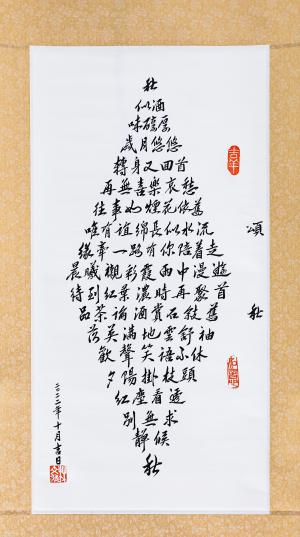 頌秋
秋
似酒
味醇厚
歲月悠悠
轉身又回首
再無喜樂哀愁
往事如煙花依舊
唯有誼綿長似水流
緣牽一路有你陪着走
晨曦襯彩霞雨中漫遊
待到紅葉濃時再聚首
品茶詢酒賞石敍舊
落英滿地雲舒袖
歡聲笑語不休
夕陽掛枝頭
紅塵看透
別無求
靜候
秋
二〇二二年十月吉日
吉羊